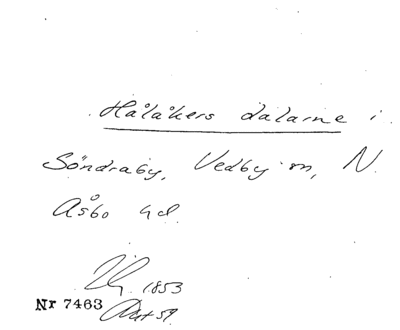 Hålåkers dalarne i
Söndraby, Vedby sn, N.
Åsbo hd.
1853
Nr 7463
Akt 59